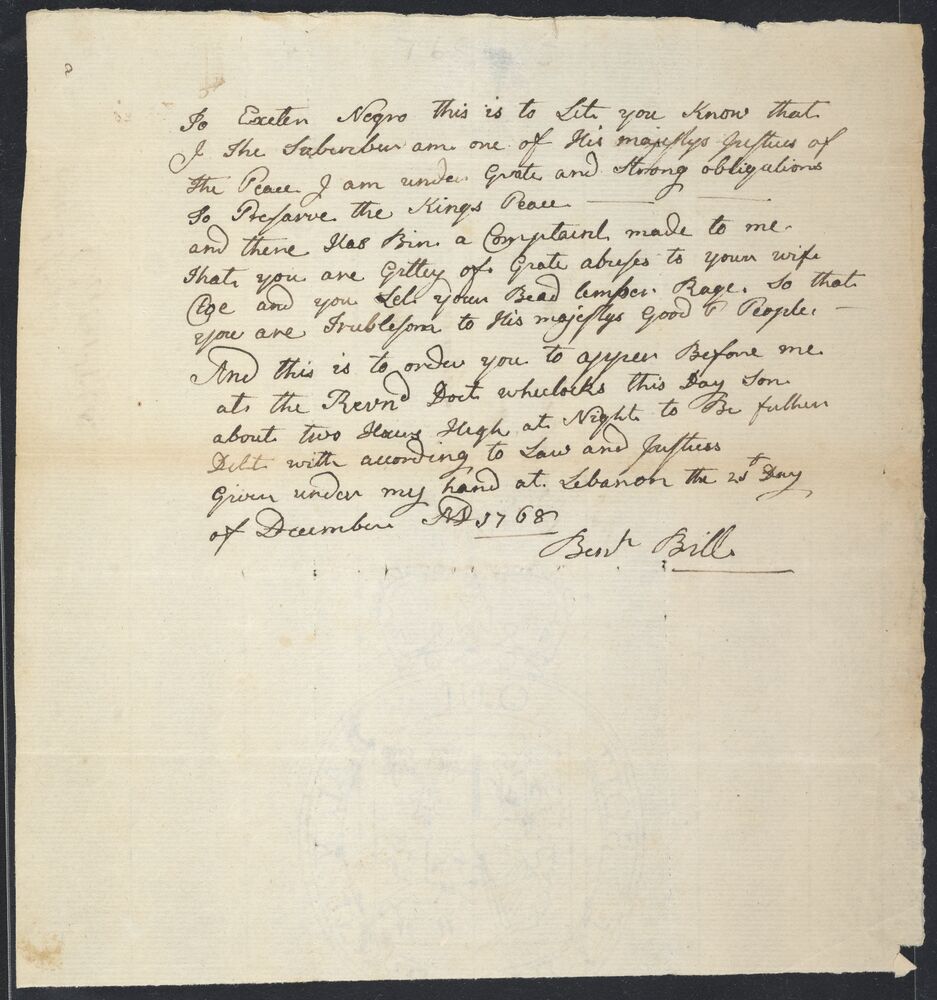 To Exeter Negro this is to Let you Know that
I the Subscriber am one of His majestys Justices of
the Peace I am under Grate and Strong obligations
To Preserve the Kings Peace
and there Has Bin a Complaint made to me
that you are Giltey of Grate abuses to your wife
Cloe and you Let your Bead temper Rage. So that
you are Trublesom to His majestys Good People
And this is to order you to apper Before me
at the Revnd Doct wheelocks this Day Son
about two Hours High at Night to Be futher
Delt with according to Law and Justiss
Given under my hand at Lebanon the 21t Day
of December AD 1768
Benjn Bill